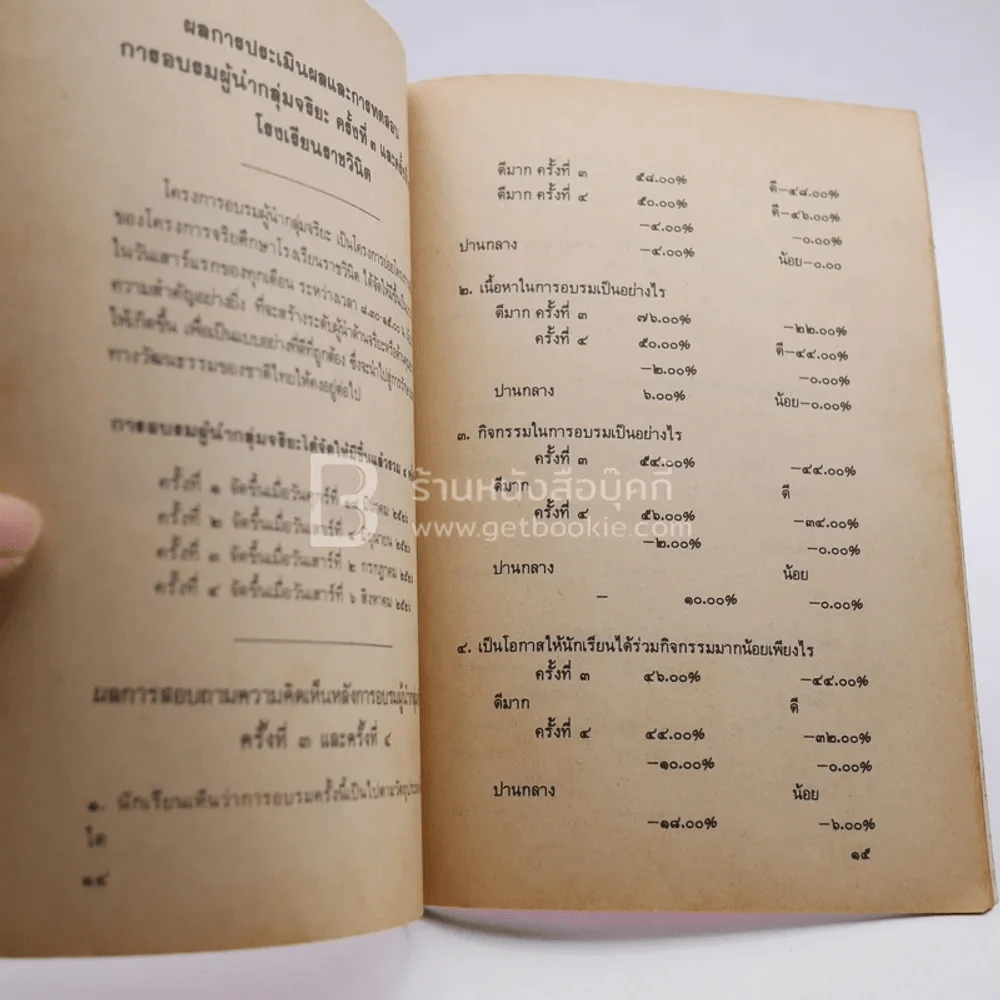 ผลการประเมินผลและการทดสอบ
การอบรมผู้นำกลุ่มจริยะ ครั้งที่ ๓ และครั้งที่
โรงเรียนราชวินิต
โครงการอบรมผู้นำกลุ่มจริยะ เป็นโครงการย่อยโครงการ
ของโครงการจริยศึกษาโรงเรียนราชวินิต ได้จัดให้มีขึ้นเป็น
ในวันเสาร์แรกของทุกเดือน ระหว่างเวลา ๘.๓๐-๑๕.๐๐ น.
ความสำคัญอย่างยิ่ง ที่จะสร้างระดับผู้นำด้านจริยะหรือด้าน
ให้เกิดขึ้น เพื่อเป็นแบบอย่างที่ดีที่ถูกต้อง ซึ่งจะนำไปสู่การรักษา
ทางวัฒนธรรมของชาติไทยให้คงอยู่ต่อไป
การอบรมผู้นำกลุ่มจริยะได้จัดให้มีขึ้นแล้วรวม ๔
ครั้งที่ ๑ จัดขึ้นเมื่อวัน
ครั้งที่ ๒ จัดขึ้นเมื่อวันเสาร์ที่
ครั้งที่ ๓ จัดขึ้นเมื่อวันเสาร์ที่ ๒ กรกฎาคม ๒๕๒๖
ครั้งที่ ๔ จัดขึ้นเมื่อวันเสาร์ที่ ๖ สิงหาคม ๒๕๒๖
ผลการสอบถามความคิดเห็นหลังการอบรมผู้นำ
ครั้งที่ ๓ และครั้งที่ ๔
๑. นักเรียนเห็นว่าการอบรมครั้งนี้เป็นไปตามวัตถุประสงค์
ใด
๑๔
ดีมาก ครั้งที่ ๓ ๕๘.๐๐% ดี-๔๘.๐๐%
ดีมาก ครั้งที่ ๔ ๕๐.๐๐% ดี-๔๖.๐๐%
-๔.๐๐% -๐.๐๐%
ปานกลาง -๔.๐๐% น้อย-๐.๐๐
๒. เนื้อหาในการอบรมเป็นอย่างไร
ดีมาก ครั้งที่ ๓ ๗๖.๐๐% -๒๒.๐๐%
ครั้งที่ ๔ ๕๐.๐๐% ดี-๔๔.๐๐%
-๒.๐๐% -๐.๐๐%
ปานกลาง ๖.๐๐% น้อย-๐.๐๐%
๓. กิจกรรมในการอบรมเป็นอย่างไร
ครั้งที่ ๓ ๕๔.๐๐% -๔๔.๐๐%
ดีมาก ดี
ครั้งที่ ๔ ๕๖.๐๐% -๓๔.๐๐%
-๒.๐๐% -๐.๐๐%
ปานกลาง น้อย
- ๑๐.๐๐% -๐.๐๐%
๔. เป็นโอกาสให้นักเรียนได้ร่วมกิจกรรมมากน้อยเพียงไร
ครั้งที่ ๓ ๔๖.๐๐% -๔๔.๐๐%
ดีมาก ดี
ครั้งที่ ๔ ๔๔.๐๐% -๓๒.๐๐%
-๑๐.๐๐% -๐.๐๐%
ปานกลาง น้อย
-๑๘.๐๐% -๖.๐๐%
๑๕
ร้านหนังสือบุ๊คกี้
www.getbookie.com